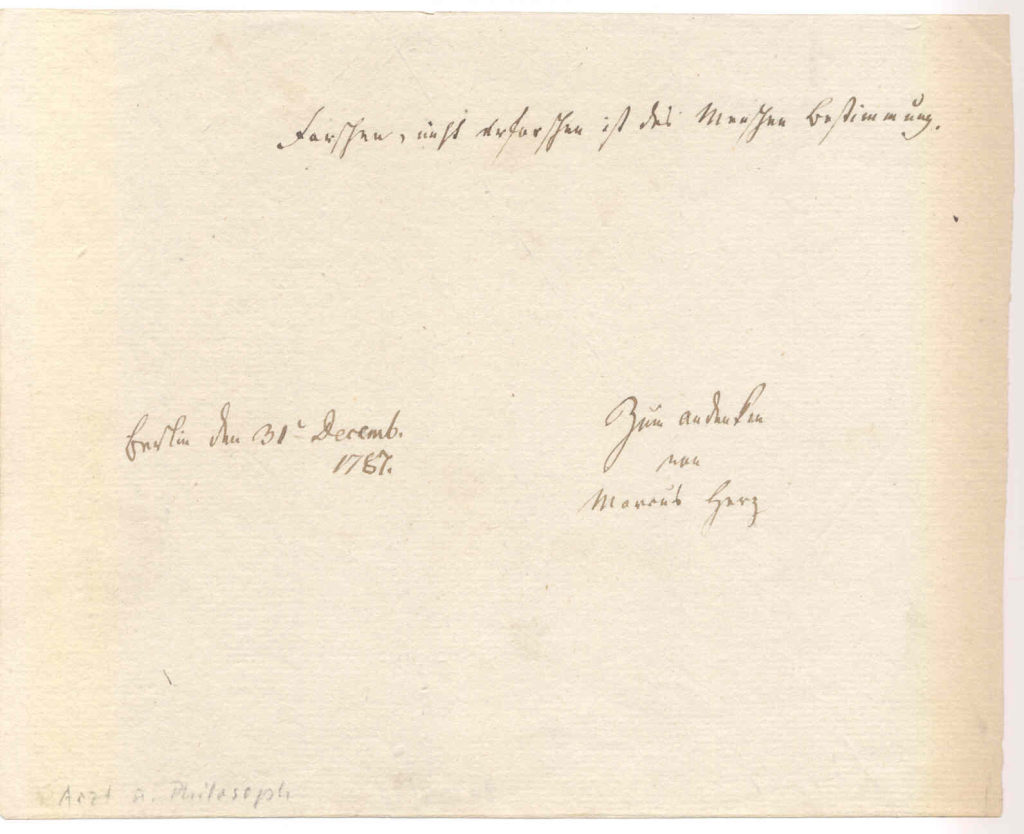 Forschen, nicht erforschen ist des Menschen Bestimmung.
Berlin den 31t Decemb.
1787.
Zum andenken
von
Marcus Herz
Arzt u. Philosoph